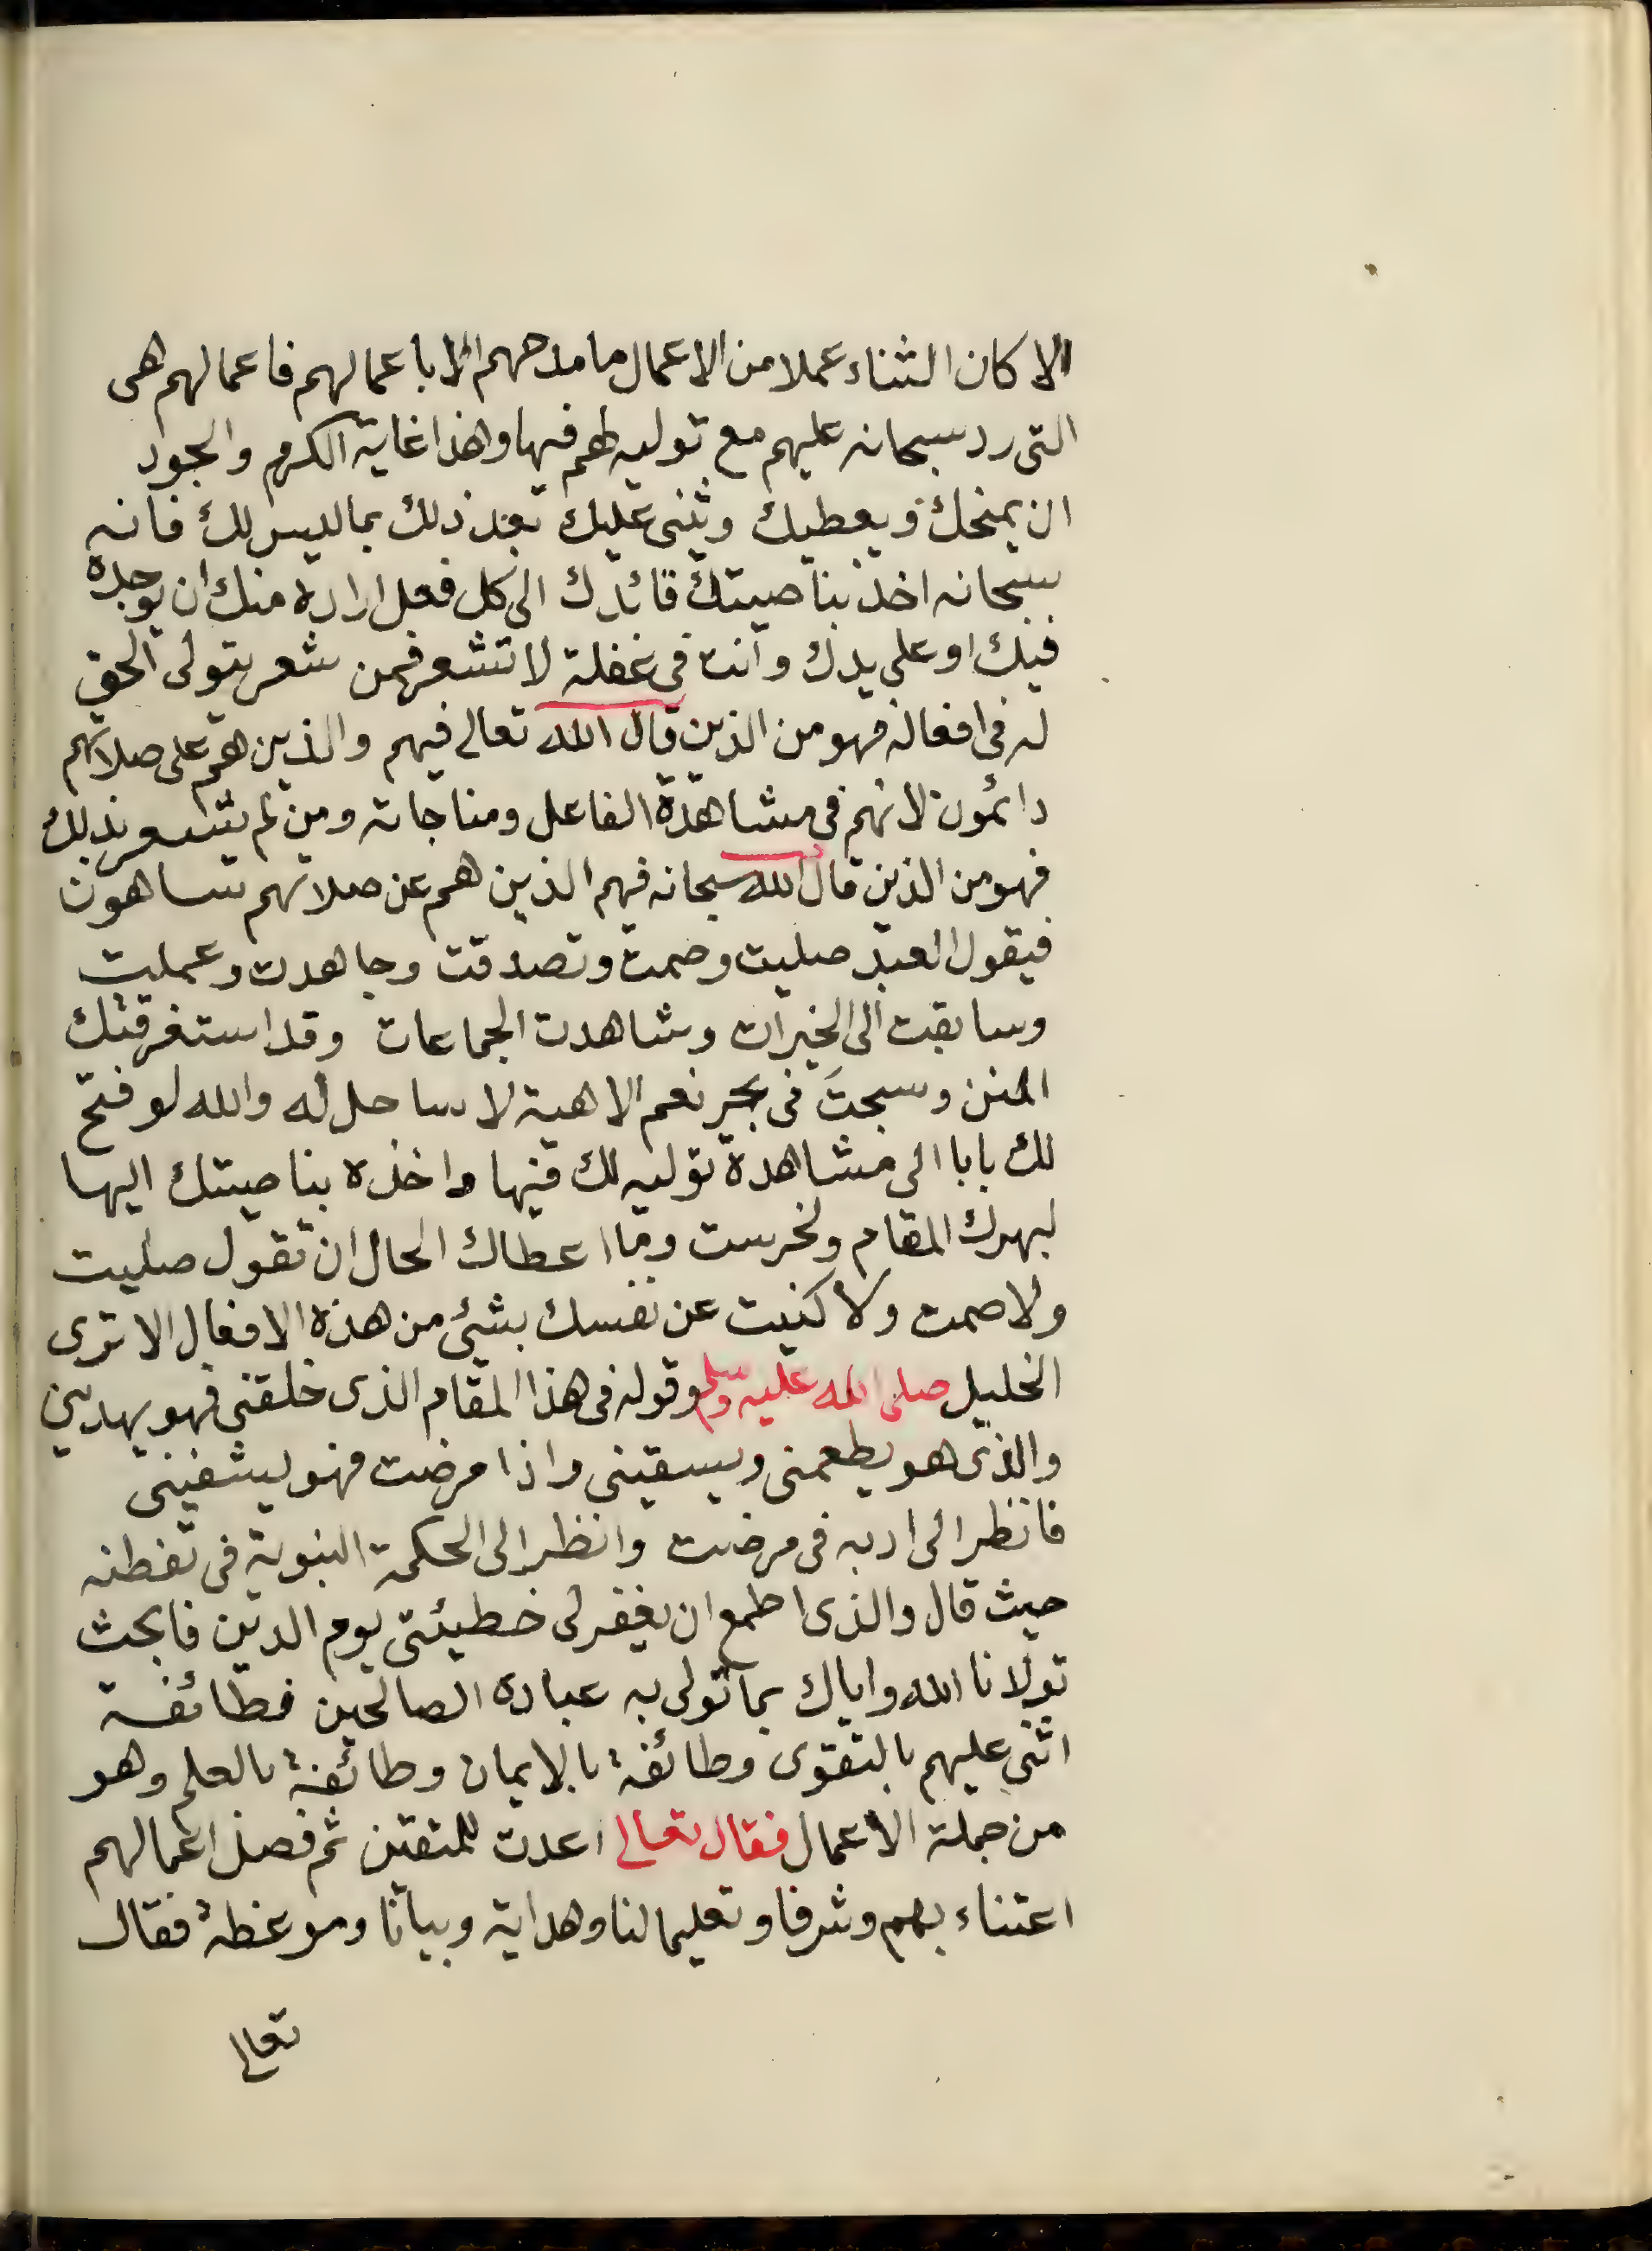 الا كان الثناء عملا من الاعمال ما مدحهم الا باعمالهم فاعمالهم هى
التى رد سبحانه عليهم مع توليه لهم فيها وهذا غاية الكرم والجود
ان يمنحك ويعطيك ويثنى عليك بعد ذلك بما ليس لك فانه
سبحانه اخذ بناصيتك قائدك الى كل فعل اراده منك ان يوجده
فيك او على يدك وانت فى غفلة لا تشعر فمن شعر بتولى الحق
له فى افعاله فهو من الذين قال الله تعالى فيهم والذين هم على صلاتهم
دائمون لانهم فى مشاهدة الفاعل ومناجاته ومن لم يشعر بذلك
فهو من الذين قال الله سبحانه فيهم الذين هم عن صلاتهم ساهون
فيقول العبد صليت وصمت وتصدقت وجاهدت وعملت
وسابقت الى الخيرات وشاهدت الجماعات وقد استغرقتك
المنن وسبحت فى بحر نعم الاهية لا ساحل له والله لو فتح
لك بابا الى مشاهدة توليه لك فيها واخذه بناصيتك اليها
لبهرك المقام ولخرست وما اعطاك الحال ان تقول صليت
ولا صمت ولا كنيت عن نفسك بشئ من هذه الافعال الا ترى
الخليل صلى الله عليه وسلم وقوله فى هذا المقام الذى خلقنى فهو يهدين
والذى هو يطعمنى ويسقينى واذا مرضت فهو يشفينى
فانظر الى ادبه فى مرضت وانظر الى الحكمة النبوية فى تفطنه
حيث قال والذى اطمع ان يغفر لى خطيئتى يوم الدين فابحث
تولانا الله واياك بما تولى به عباده الصالحين فطائفة
اثنى عليهم بالتقوى وطائفة بالايمان وطائفة بالعلم وهو
من جملة الاعمال فقال تعالى اعدت للمتقين ثم فصل اعمالهم
اعتناء بهم وشرفا وتعليما لنا وهداية وبيانا وموعظة فقال
تعالى